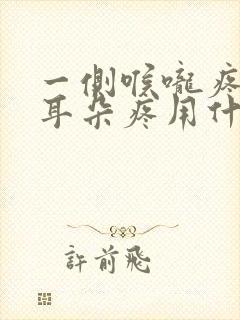 一側喉嚨疼
耳朵疼用什
許前飛